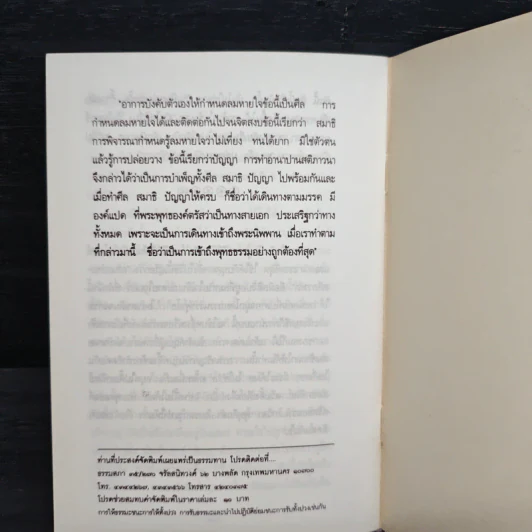 "อาการบังคับตัวเองให้กำหนดลมหายใจข้อนี้เป็นศีล การ
กำหนดลมหายใจได้และติดต่อกันไปจนจิตสงบข้อนี้เรียกว่า สมาธิ
การพิจารณากำหนดรู้ลมหายใจว่าไม่เที่ยง ทนได้ยาก มิใช่ตัวตน
แล้วรู้การปล่อยวาง ข้อนี้เรียกว่าปัญญา การทำอานาปานสติภาวนา
จึงกล่าวได้ว่าเป็นการบำเพ็ญทั้งศีล สมาธิ ปัญญา ไปพร้อมกันและ
เมื่อทำศีล สมาธิ ปัญญาให้ครบ ก็ชื่อว่าได้เดินทางตามมรรค มี
องค์แปด ที่พระพุทธองค์ตรัสว่าเป็นทางสายเอก ประเสริฐกว่าทาง
ทั้งหมด เพราะจะเป็นการเดินทางเข้าถึงพระนิพพาน เมื่อเราทำตาม
ที่กล่าวมานี้ ชื่อว่าเป็นการเข้าถึงพุทธธรรมอย่างถูกต้องที่สุด"
ท่านที่ประสงค์จัดพิมพ์เผยแพร่เป็นธรรมทาน โปรดติดต่อที่...
ธรรมสภา ๓๕/๒๗๐ จรัลสนิทวงศ์ ๖๒ บางพลัด กรุงเทพมหานคร ๑๐๗๐๐
โทร. โทรสาร
โปรดช่วยสมทบค่าจัดพิมพ์ในราคาเล่มละ ๑๐ บาท
การให้ธรรมะชนะการให้ทั้งปวง การรับธรรมะและนำไปปฏิบัติย่อมชนะการรับทั้งปวงเช่นกัน